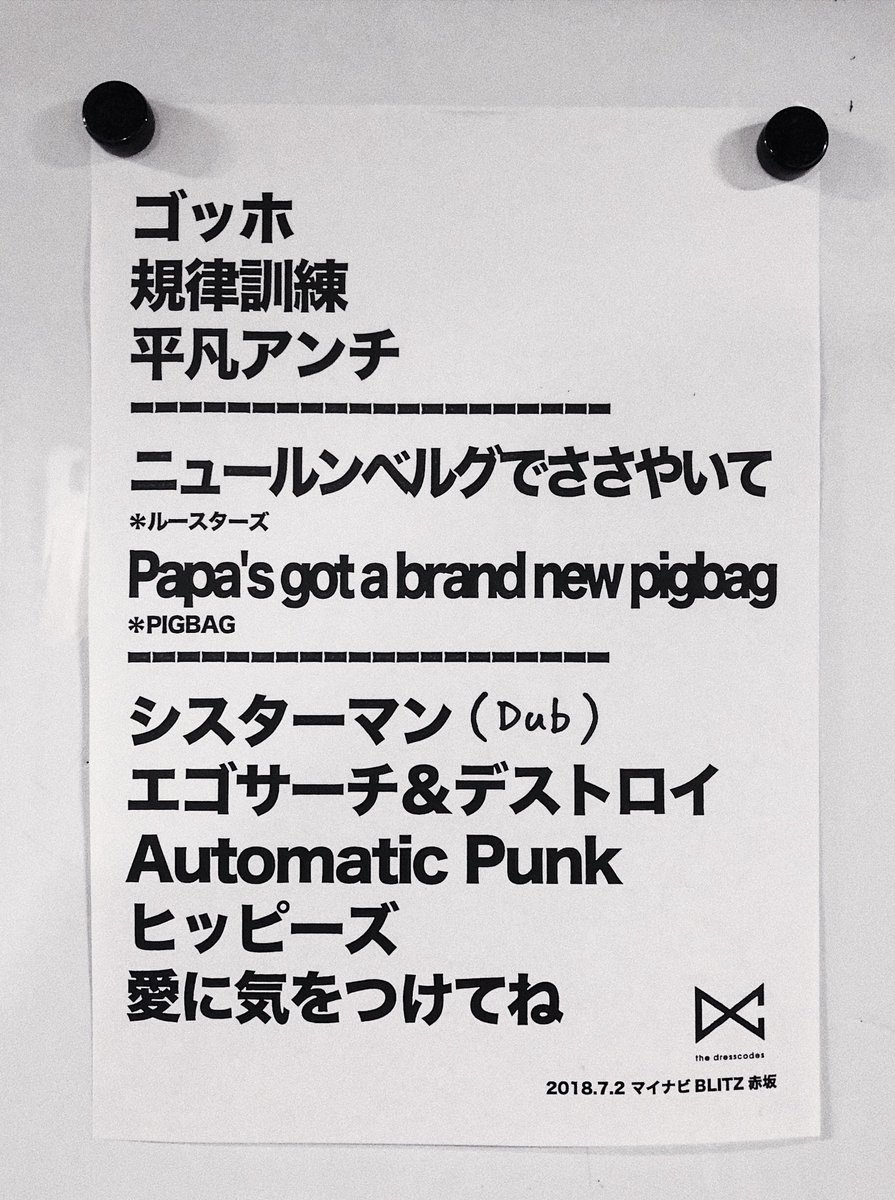 ゴッホ
規律訓練
平凡アンチ
--------------------
ニュールンベルグでささやいて
*ルースターズ
Papa's got a brand new pigbag
*PIGBAG
--------------------
シスターマン(Dub)
エゴサーチ&デストロイ
Automatic Punk
ヒッピーズ
愛に気をつけてね
the dresscodes
2018.7.2 マイナビBLITZ赤坂